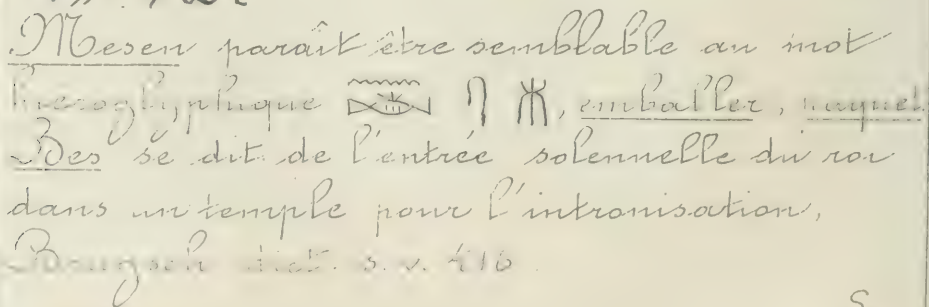 Mesen paraît être semblable au mot
hieroglyphique 𓈖 𓋴 , emballer, paquet
Bes se dit de l'entrée solennelle du roi
dans un temple pour l'intronisation,
Brugsch dict. s.v. 416